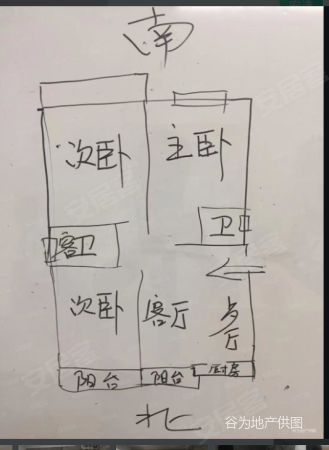 南
次卧
主卧
卫
客卫
次卧
客厅
餐厅
阳台
阳台
厨房
北
谷为地产供图